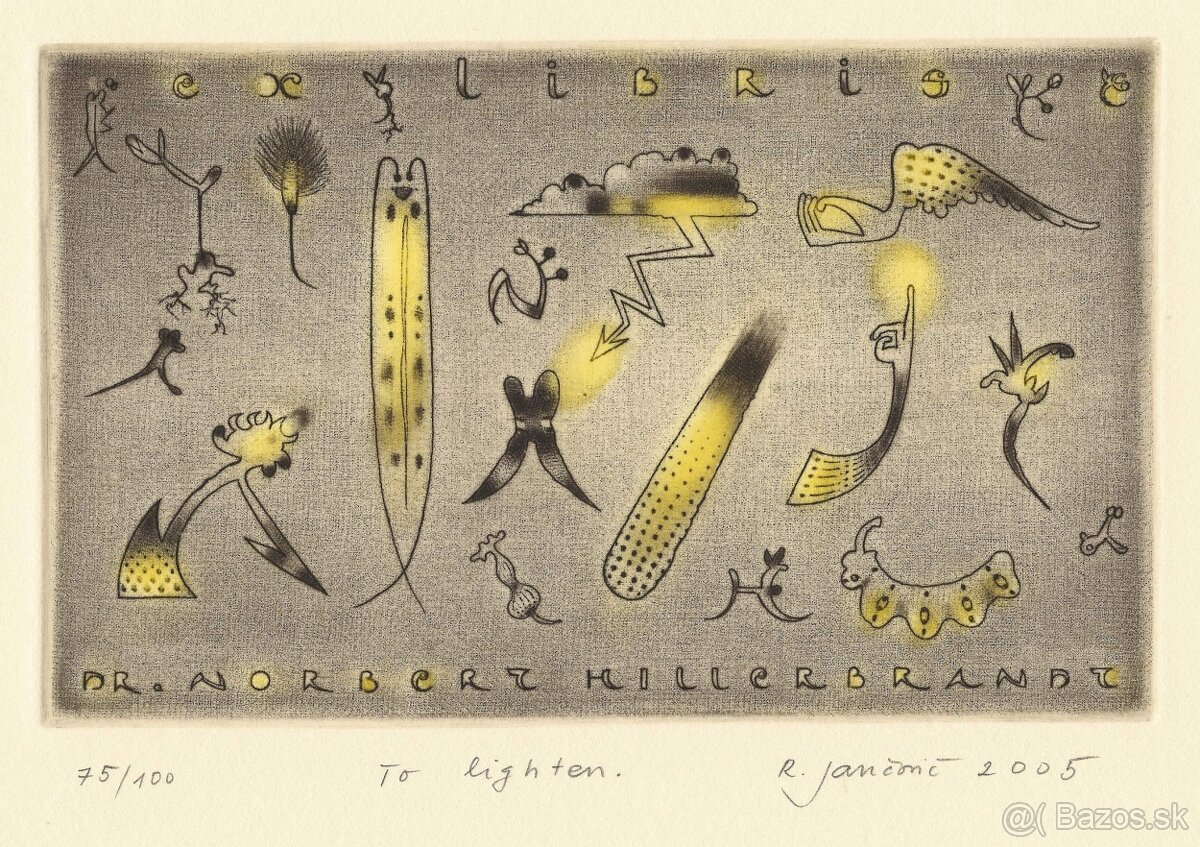 ex libris
DR. NORBERT HILLERBRANDT
75/100 To lighten. R. Jančovič 2005
@( Bazos.sk